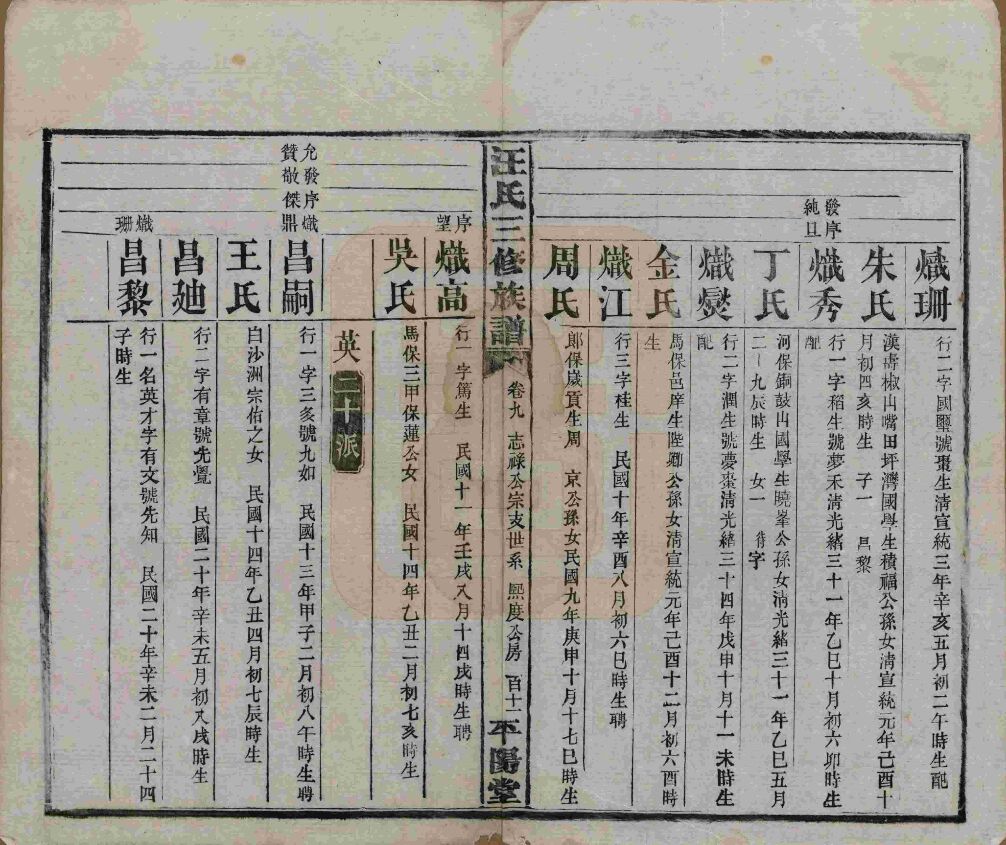 熾珊
行二字國璽號棗生清宣統三年辛亥五月初二午時生配
朱氏
漢壽椒山嘴田坪灣國學生積福公孫女清宣統元年己酉十
月初四亥時生 子一 昌黎
發序
純旦
熾秀
行一字稻生號夢禾清光緒三十一年乙巳十月初六卯時生
配
丁氏
河保銅鼓山國學生曉峯公孫女清光緒三十一年乙巳五月
二十九辰時生 女一 待字
熾爕
行二字潤生號夢棗清光緒三十四年戊申十月十一未時生
配
金氏
馬保邑庠生陛卿公孫女清宣統元年己酉十二月初六酉時
生
熾江
行三字桂生 民國十年辛酉八月初六巳時生聘
周氏
郎保歲貢生周 京公孫女民國九年庚申十月十七巳時生
汪氏三修族譜
卷九 志祿公宗支世系 熙度公房 百十二
平陽堂
序
望
熾高
行一字篤生 民國十一年壬戌八月十四戌時生聘
吳氏
馬保三甲保蓮公女 民國十四年乙丑二月初七亥時生
英 二十派
允發序熾
贊敬傑鼎
昌嗣
行一字三多號九如 民國十三年甲子二月初八午時生聘
王氏
白沙洲宗佑之女 民國十四年乙丑四月初七辰時生
昌廸
行二字有章號先覺 民國二十年辛未五月初八戌時生
熾
珊
昌黎
行一名英才字有文號先知 民國二十年辛未二月二十四
子時生